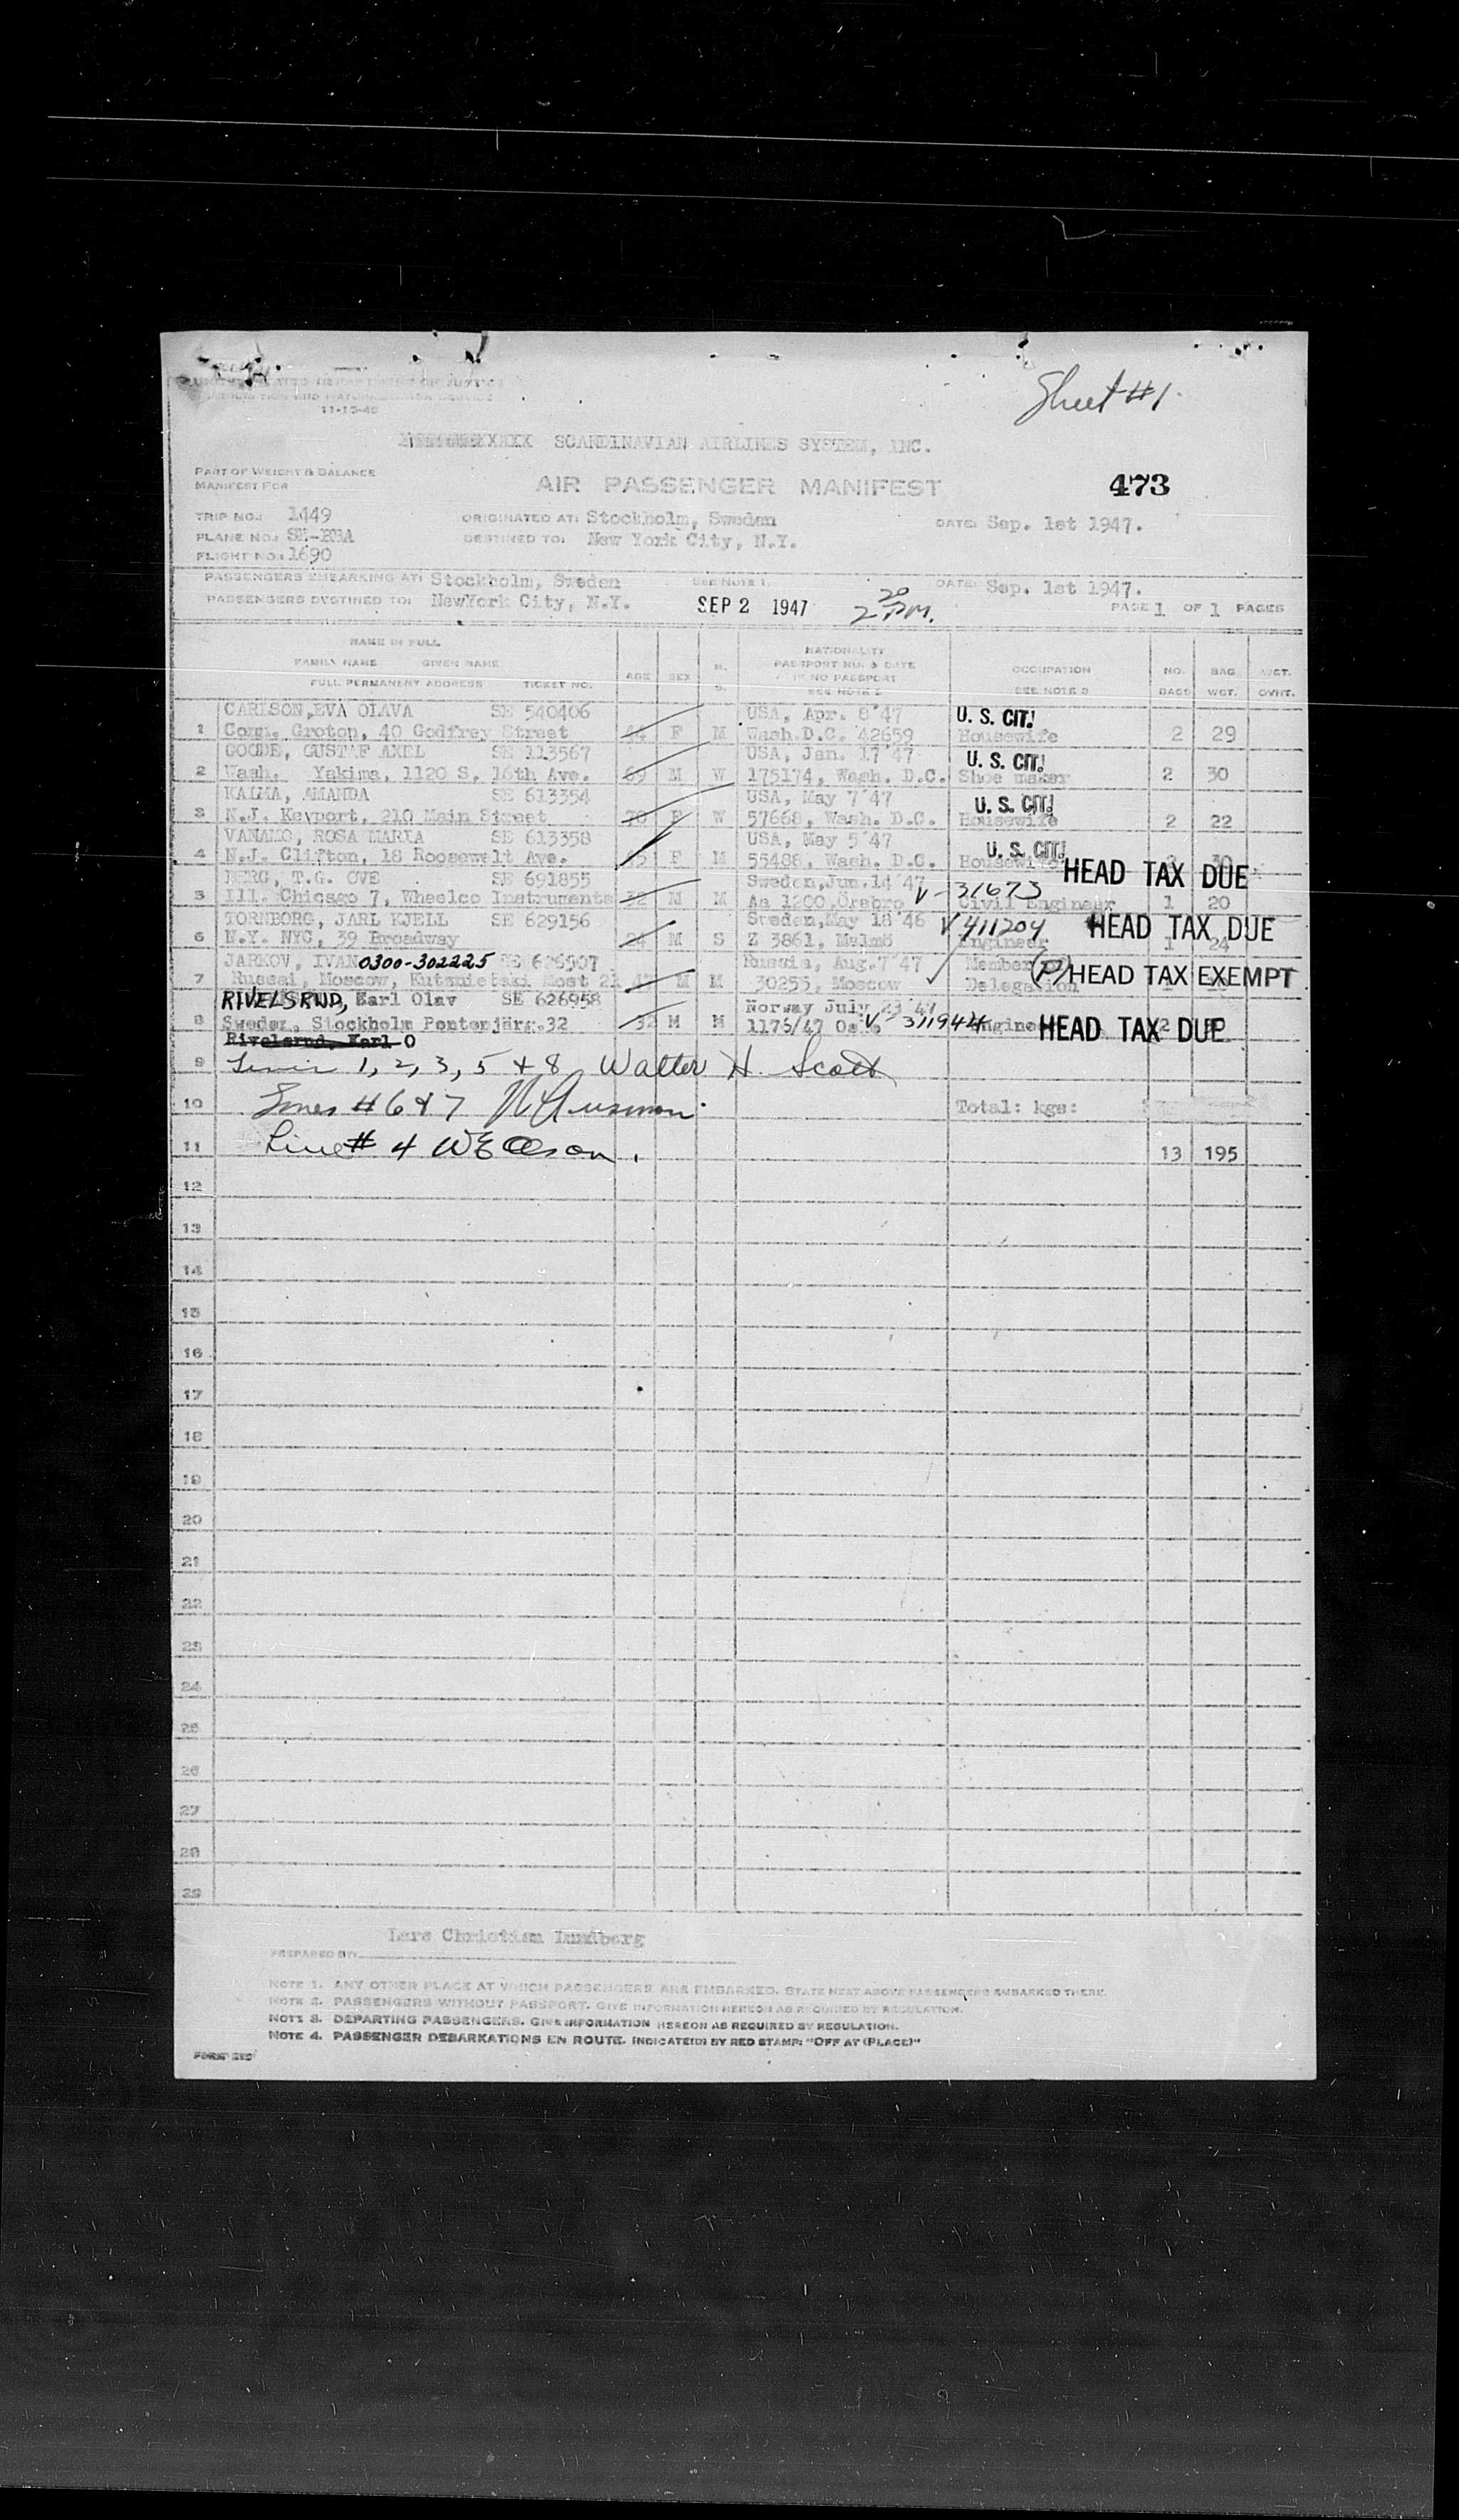 UNITED STATES DEPARTMENT OF JUSTICE
IMMIGRATION AND NATURALIZATION SERVICE
11-15-45
Sheet #1.
SCANDINAVIAN AIRLINES SYSTEM, INC.
PART OF WEIGHT & BALANCE
MANIFEST FOR
AIR PASSENGER MANIFEST
473
TRIP NO.: 1449 ORIGINATED AT: Stockholm, Sweden DATE: Sep. 1st 1947.
PLANE NO.: DESTINED TO: New York City, N.Y.
FLIGHT NO.: 1690
PASSENGERS EMBARKING AT: Stockholm, Sweden SEE NOTE 1. DATE: Sep. 1st 1947.
PASSENGERS DESTINED TO: NewYork City, N.Y. SEP 2 1947 2 20 P.M. PAGE 1 OF 1 PAGES
NAME IN FULL
FAMILY NAME GIVEN NAME
FULL PERMANENT ADDRESS TICKET NO.
AGE SEX M. S.
NATIONALITY
PASSPORT NO. & DATE
IF NO PASSPORT
SEE NOTE 2
OCCUPATION
SEE NOTE 3
NO. BAGS
BAG WGT.
WGT. OVHT.
CARLSON, EVA OLAVA SE 540406 USA, Apr. 8'47 U. S. CIT!
1 Conn. Groton, 40 Godfrey Street F M Wash.D.C. 42659 Housewife 2 29
GOODE, GUSTAF AXEL SE 113567 USA, Jan. 17'47 U. S. CIT!
2 Wash. Yakima, 1120 S, 16th Ave. 69 M W 175174, Wash. D.C. Shoe maker 2 30
KALMA, AMANDA SE 613354 USA, May 7'47 U. S. CIT!
3 N.J. Keyport, 210 Main Street 70 F W 57668, Wash. D.C. Housewife 2 22
VANAMO, ROSA MARIA SE 613358 USA, May 5'47 U. S. CIT!
4 N.J. Clifton, 18 Roosewelt Ave. F M 55488, Wash. D.C. Housewife HEAD TAX DUE
BERG, T.G. OVE SE 691855 Sweden, Jun. 14'47 V-31673
5 Ill. Chicago 7, Wheelco Instruments 32 M M Aa 1200, Örebro Civil Engineer 1 20
TORNBORG, JARL KJELL SE 629156 Sweden, May 18'46 V 411204 HEAD TAX DUE
6 N.Y. NYC, 39 Broadway 24 M S Z 3861, Malmö Engineer 1 24
JARKOV, IVAN 0300-302225 SE 626907 Russia, Aug. 7'47 Member (P) HEAD TAX EXEMPT
7 Russai, Moscow, Kutznietski Most M M 30255, Moscow Delegation
RIVELSRUD, Karl Olav SE 626958 Norway July 23'47
8 Sweden, Stockholm Pontonjärg.32 32 M M 1176/47 Oslo V-311944 Engineer HEAD TAX DUE 2
Rivelsrnd, Karl O
9 Lines 1, 2, 3, 5 + 8 Walter H. Scott
10 Lines #6 & 7 Total: kgs:
11 Line # 4 W E Olson. 13 195
12
13
14
15
16
17
18
19
20
21
22
23
24
25
26
27
28
29
Lars Christian Lundberg
PREPARED BY:
NOTE 1. ANY OTHER PLACE AT WHICH PASSENGERS ARE EMBARKED. STATE NEXT ABOVE PASSENGERS EMBARKED THERE.
NOTE 2. PASSENGERS WITHOUT PASSPORT. GIVE INFORMATION HEREON AS REQUIRED BY REGULATION.
NOTE 3. DEPARTING PASSENGERS. GIVE INFORMATION HEREON AS REQUIRED BY REGULATION.
NOTE 4. PASSENGER DEBARKATIONS EN ROUTE. INDICATE(D) BY RED STAMP: "OFF AT (PLACE)"